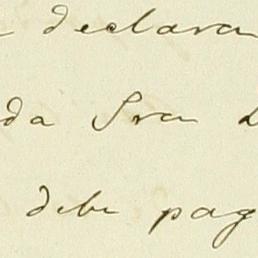 declara
da Sra
debe pag